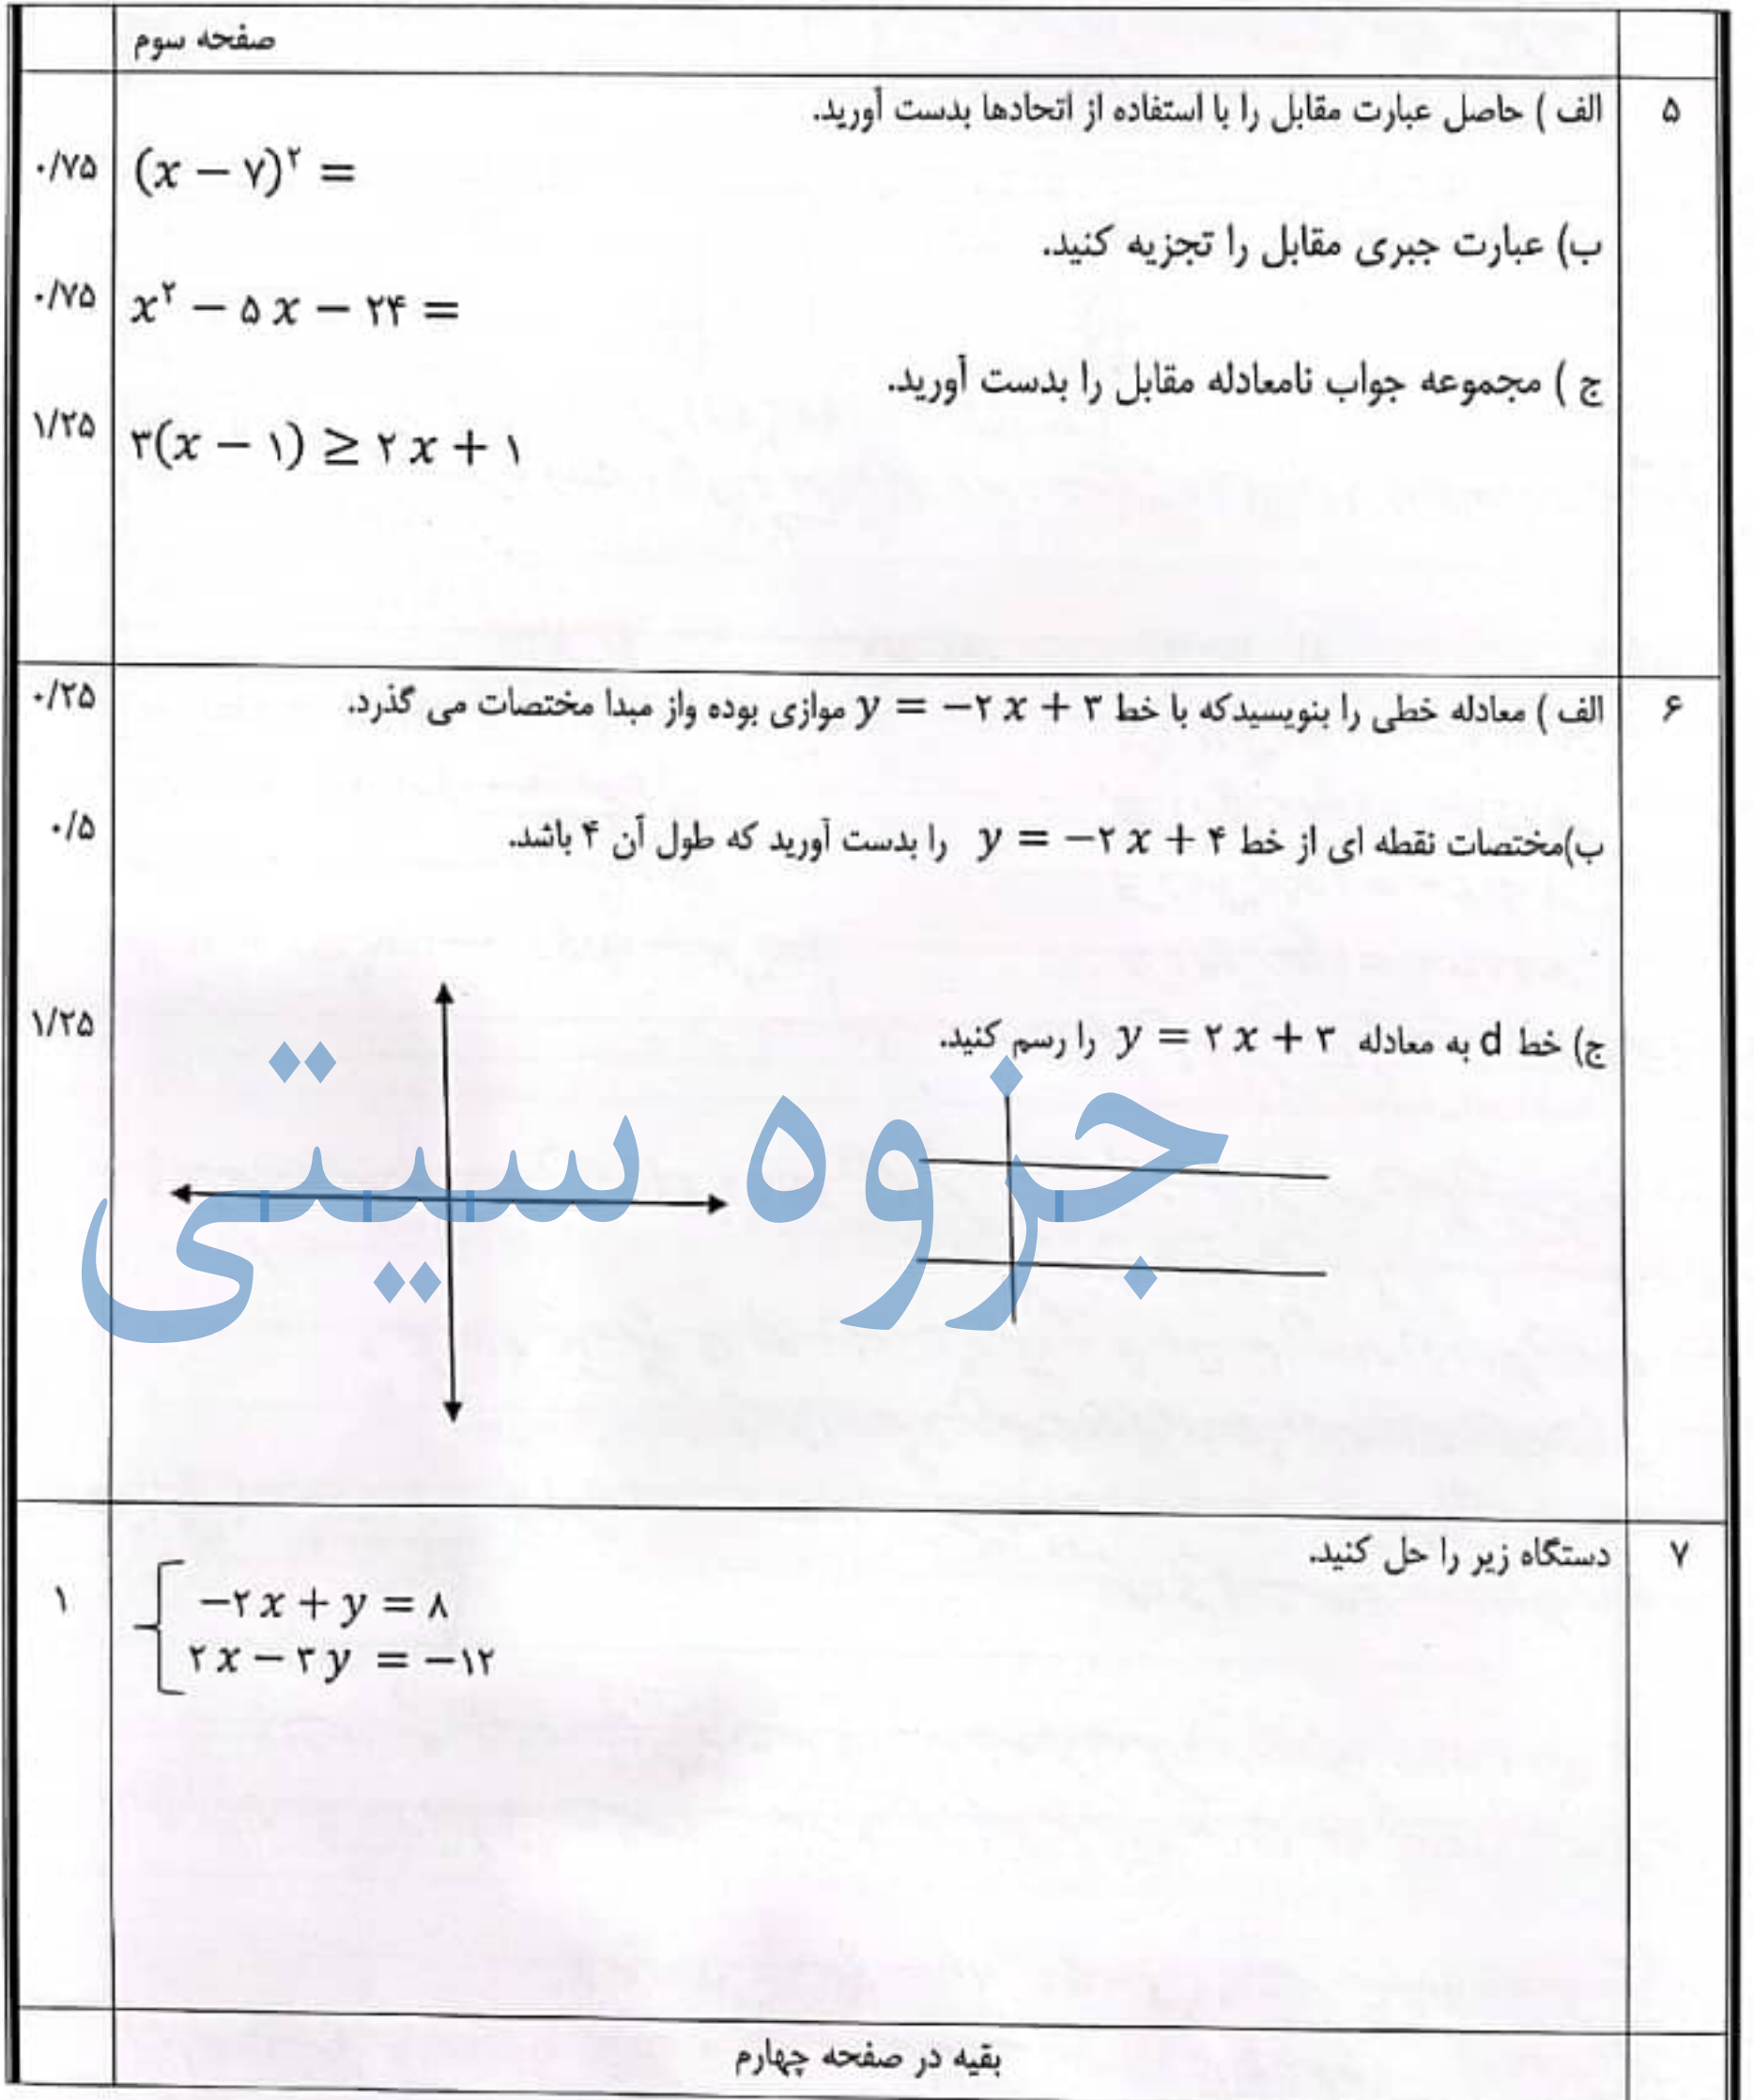 صفحه سوم
۵
الف ) حاصل عبارت مقابل را با استفاده از اتحادها بدست آورید.
(x − ۷)^۲ =
۰/۷۵
ب) عبارت جبری مقابل را تجزیه کنید.
x^۲ − ۵ x − ۲۴ =
۰/۷۵
ج ) مجموعه جواب نامعادله مقابل را بدست آورید.
۳(x − ۱) ≥ ۲ x + ۱
۱/۲۵
۶
الف ) معادله خطی را بنویسیدکه با خط y = −۲ x + ۳ موازی بوده واز مبدا مختصات می گذرد.
۰/۲۵
ب)مختصات نقطه ای از خط y = −۲ x + ۴ را بدست آورید که طول آن ۴ باشد.
۰/۵
ج) خط d به معادله y = ۲ x + ۳ را رسم کنید.
۱/۲۵
جزوه سیتی
۷
دستگاه زیر را حل کنید.
−۲ x + y = ۸
۲ x − ۳ y = −۱۲
۱
بقیه در صفحه چهارم